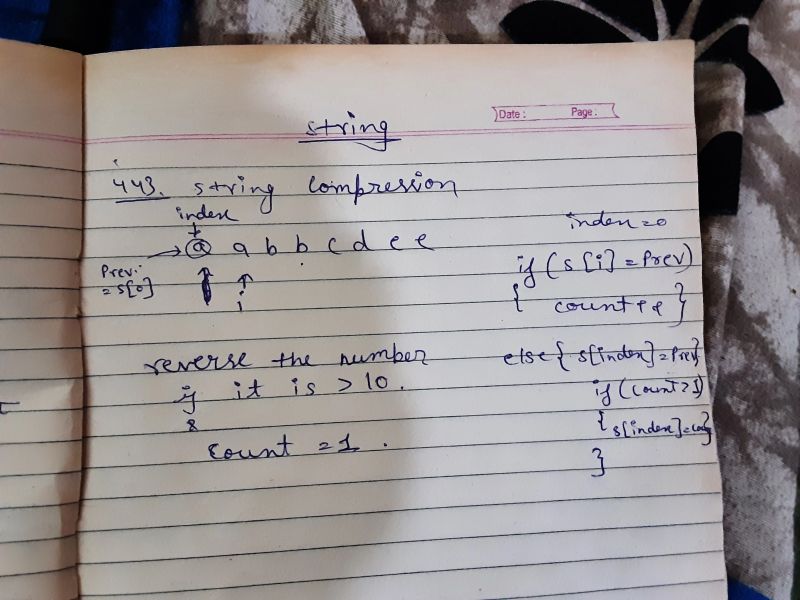 string
Date :
Page :
443. string compression
index
a a b b c d e e
Prev.
= s[0]
i
index=0
if (s[i] = Prev)
{ count++ }
reverse the number
if it is > 10.
&
count = 1 .
else { s[index]=Prev
if (count>1)
{ s[index]=cou}
}